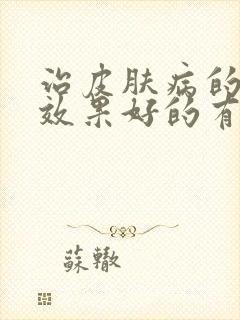 治皮肤病的
效果好的有
蘇轍